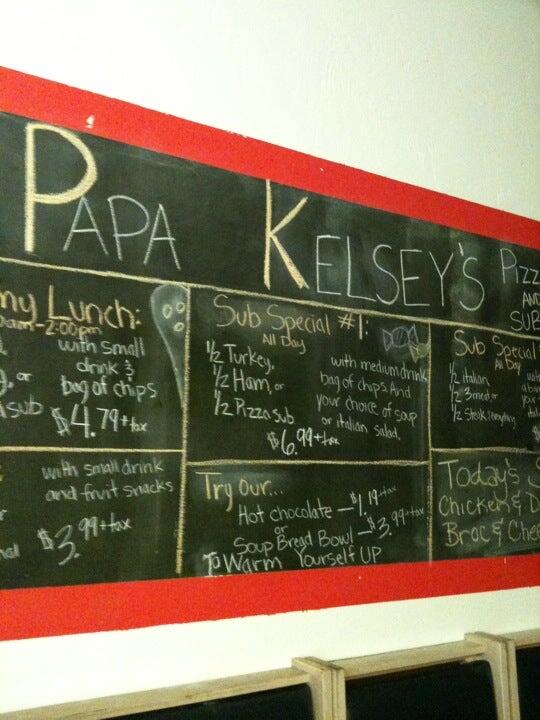 PAPA KELSEY'S Pizz
AND
SUB
my Lunch:
am-2:00pm
with small
drink &
or bag of chips
sub $4.79+tax
with small drink
and fruit snacks
$3.99+tax
Sub Special #1:
All Day
1/2 Turkey,
1/2 Ham, or
1/2 Pizza sub
with medium drink
bag of chips. And
your choice of soup
or italian salad.
$6.99+tax
Try our...
Hot chocolate — $1.19+tax
or
Soup Bread Bowl — $3.99+tax
To Warm Yourself UP
Sub Special
All Day
1/2 italian,
1/2 3meat or
1/2 Steak/everything
Today's S
Chicken & D
Broc & Chee